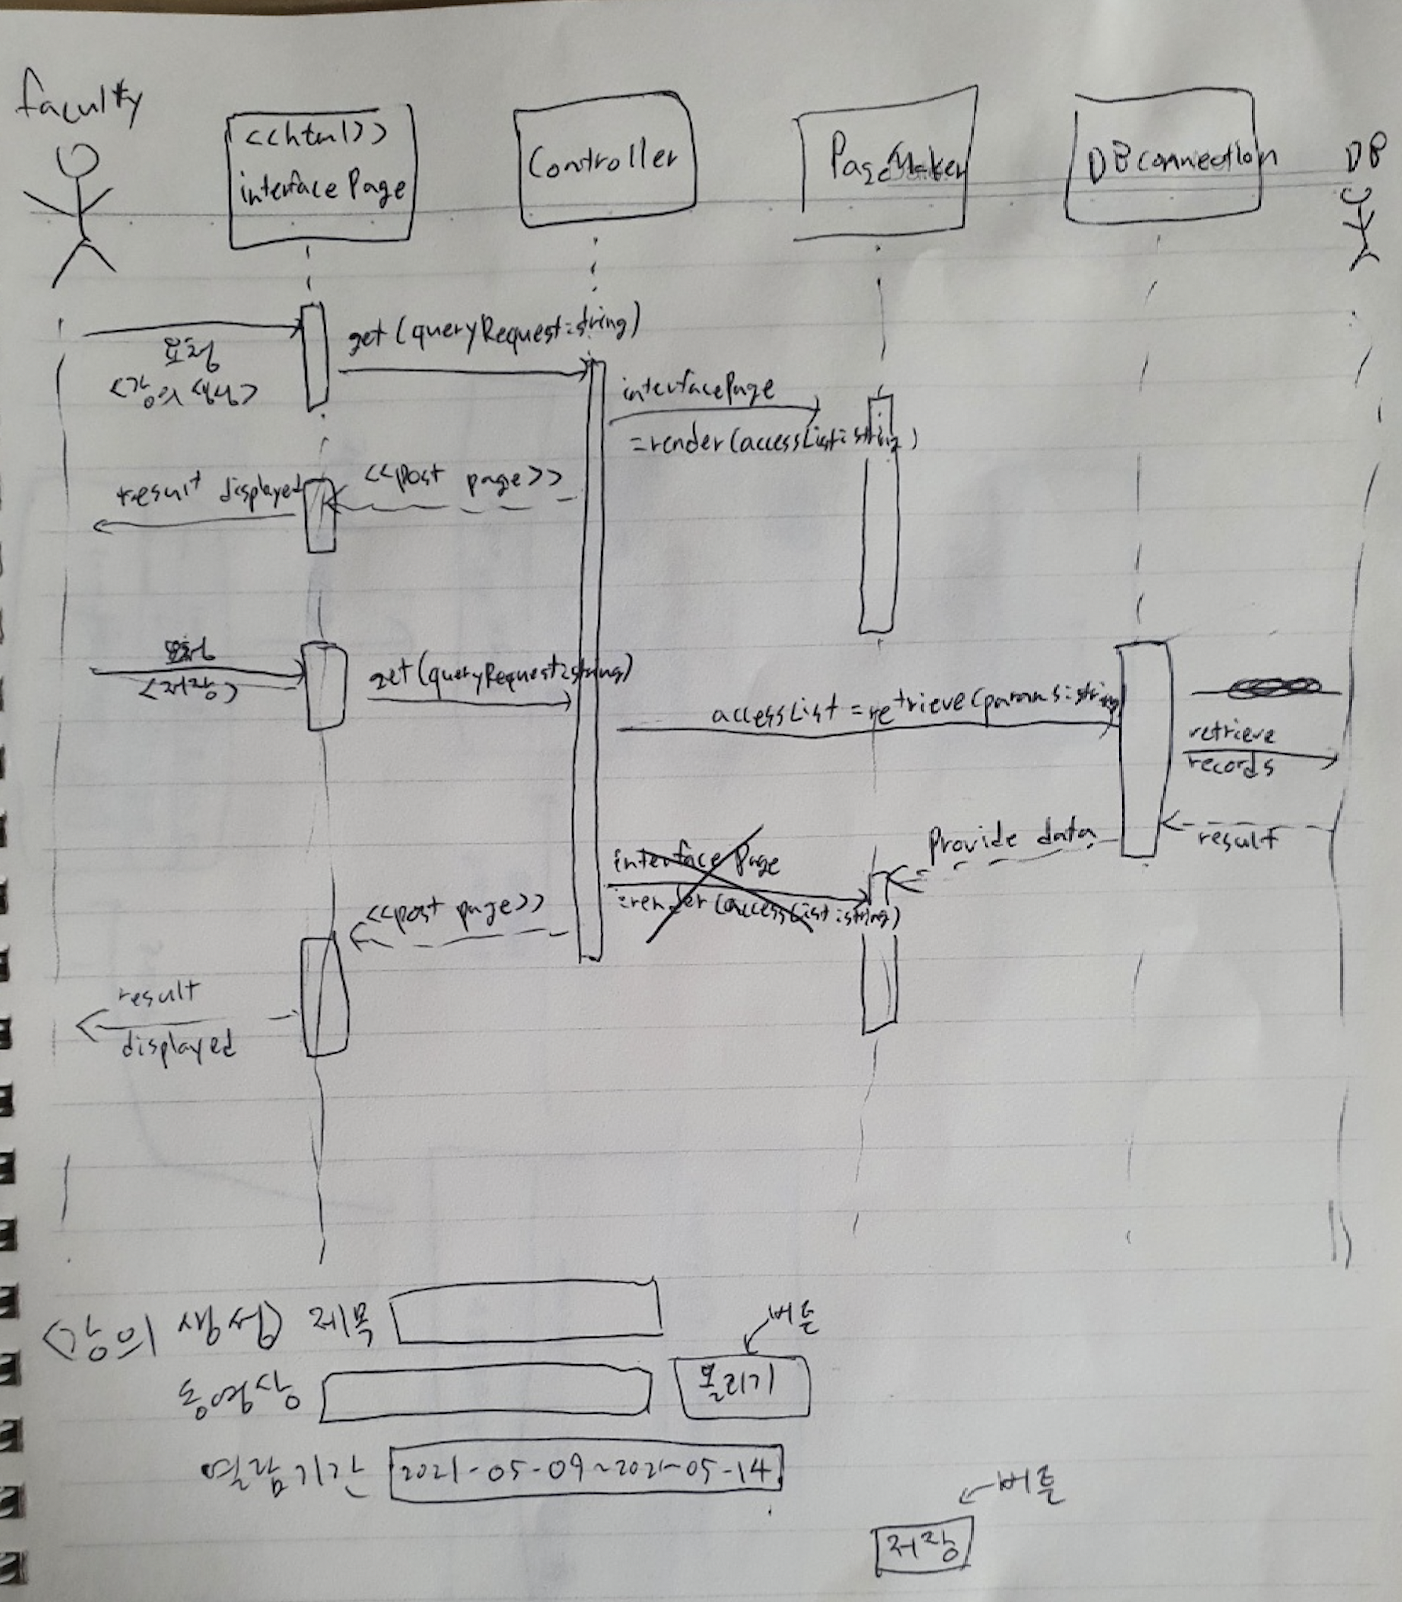 faculty
<<html>>
interface Page
Controller
PageMaker
DBconnection
DB
요청
<강의 생성>
get(queryRequest:string)
interfacePage
=render(accessList:string)
<<post page>>
result displayed
요청
<저장>
get(queryRequest:string)
accessList = retrieve(params:string
retrieve
records
result
Provide data
interface Page
=render(accessList:string)
<<post page>>
result
displayed
<강의 생성> 제목
버튼
동영상
올리기
열람기간 2021-05-09~2021-05-14
버튼
저장